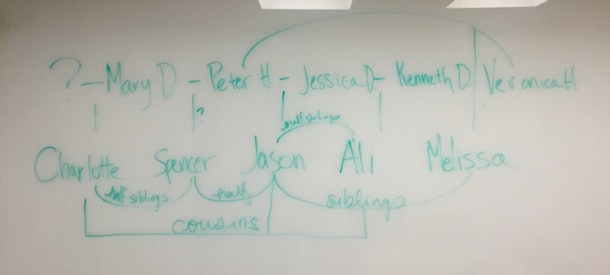 ? - Mary D. - Peter H - Jessica D - Kenneth D. Veronica H
?
half siblings
Charlotte Spencer Jason Ali Melissa
half siblings half siblings
cousins